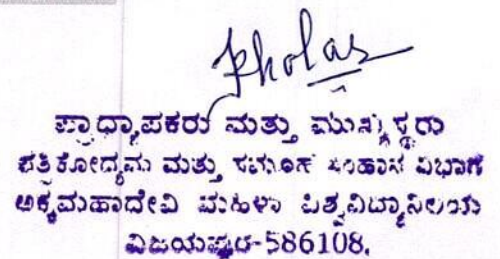 Kholas
ಪ್ರಾಧ್ಯಾಪಕರು ಮತ್ತು ಮುಖ್ಯಸ್ಥರು
ಪತ್ರಿಕೋದ್ಯಮ ಮತ್ತು ಸಮೂಹ ಸಂಹನ ವಿಭಾಗ
ಅಕ್ಕಮಹಾದೇವಿ ಮಹಿಳಾ ವಿಶ್ವವಿದ್ಯಾನಿಲಯ
ವಿಜಯಪುರ-586108.